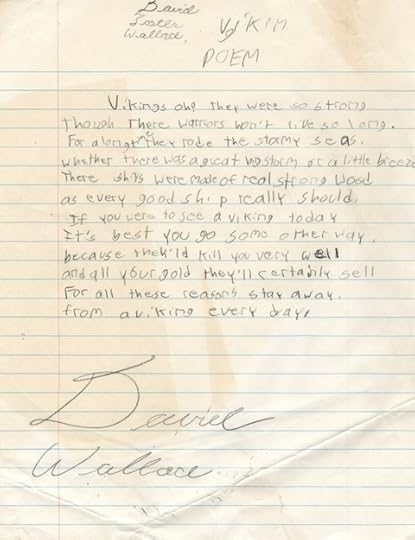 David
Foster
Wallace,
VikIM
POEM
Vikings oh! They were so strong
Though there warriors won't live so long.
For a long time they rode the stormy seas.
whether there was a great big storm or a little breeze
There ships were made of real strong wood
as every good ship really should.
If you were to see a viking today
It's best you go some other way.
because they'ld kill you very well
and all your gold they'll certainly sell
For all these reasons stay away.
from a viking every day.
David
Wallace